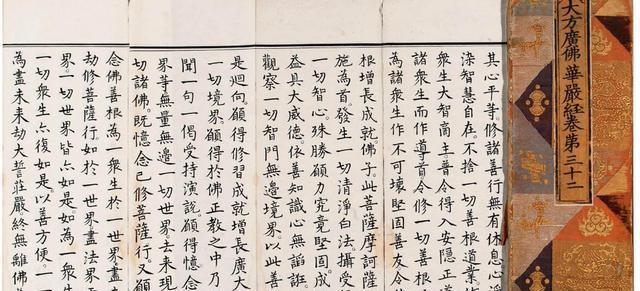 大方廣佛華嚴經卷第三十二
其心平等。修諸善行無有休息心淨
染智慧自在。不捨一切善根道業。作
衆生大智商主普令得入安隱正道
諸衆生而作導首令修一切善根
為諸衆生作不可壞堅固善友令
根增長成就佛子。此菩薩摩訶薩
施為首。發生一切清淨白法攝受
一切智心。殊勝願力究竟堅固。成
益具大威德。依善知識心無諂誑
觀察一切智門無邊境界以此善
是迴向。願得修習成就增長廣大
一切境界。願得於佛正教之中乃
聞一句一偈受持演說。願得憶念
界等無量無邊一切世界去来現
切諸佛。既憶念已修菩薩行。又願
念佛善根為一衆生於一世界。盡
劫修菩薩行如於一世界盡法界
界。一切世界皆亦如是。如為一衆
一切衆生亦復如是。以善方便。一
為盡未來劫大誓莊嚴。終無離佛